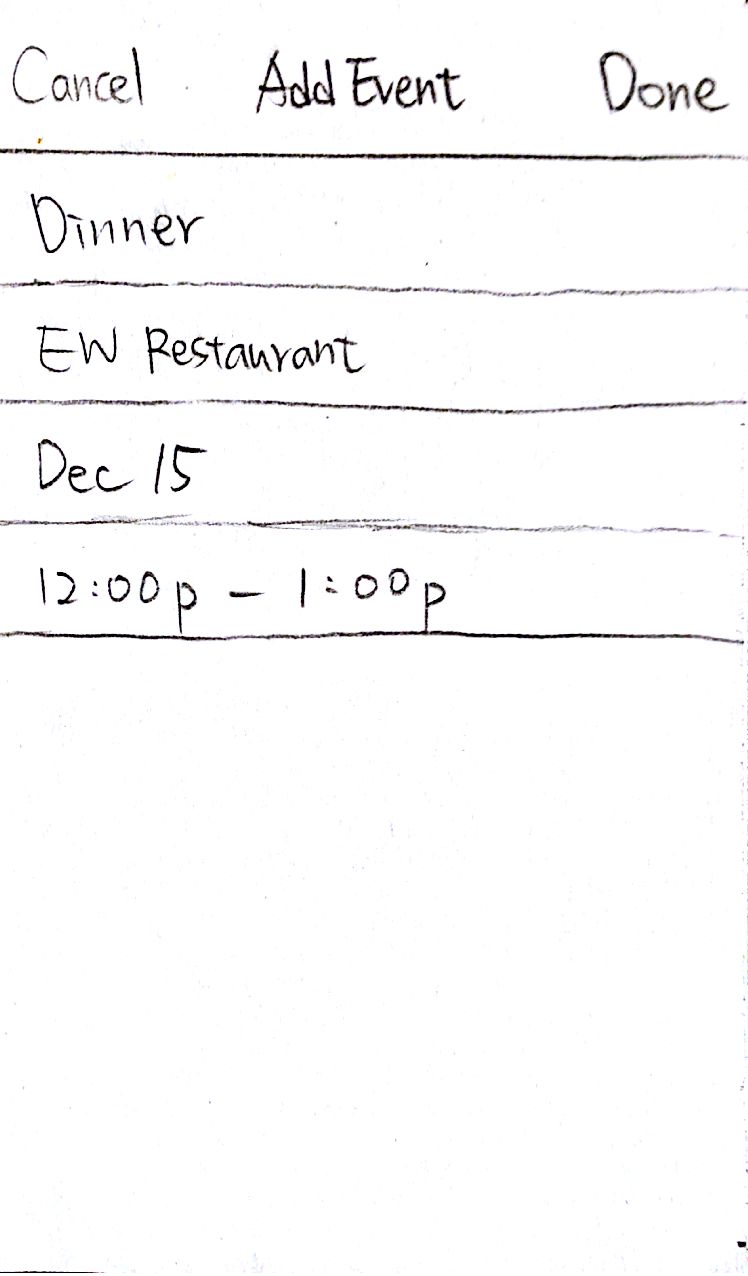 Cancel Add Event Done
Dinner
EW Restaurant
Dec 15
12:00p - 1:00p